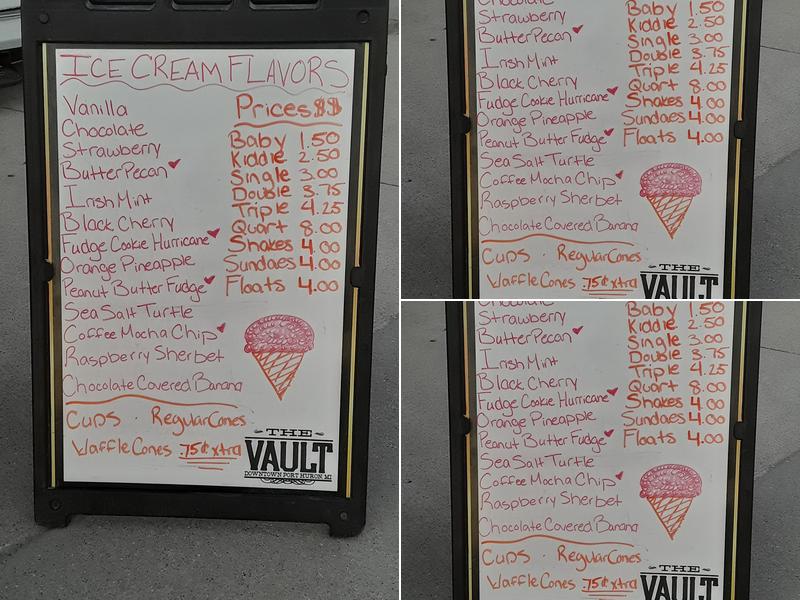 ICE CREAM FLAVORS
Vanilla
Chocolate
Strawberry
Butter Pecan
Irish Mint
Black Cherry
Fudge Cookie Hurricane
Orange Pineapple
Peanut Butter Fudge
Sea Salt Turtle
Coffee Mocha Chip
Raspberry Sherbet
Chocolate Covered Banana
Prices $$
Baby 1.50
Kiddie 2.50
Single 3.00
Double 3.75
Triple 4.25
Quart 8.00
Shakes 4.00
Sundaes 4.00
Floats 4.00
Cups · Regular Cones
Waffle Cones .75¢ xtra
THE
VAULT
DOWNTOWN PORT HURON MI
Chocolate
Strawberry
Butter Pecan
Irish Mint
Black Cherry
Fudge Cookie Hurricane
Orange Pineapple
Peanut Butter Fudge
Sea Salt Turtle
Coffee Mocha Chip
Raspberry Sherbet
Chocolate Covered Banana
Baby 1.50
Kiddie 2.50
Single 3.00
Double 3.75
Triple 4.25
Quart 8.00
Shakes 4.00
Sundaes 4.00
Floats 4.00
Cups · Regular Cones
Waffle Cones .75¢ xtra
THE
VAULT
Chocolate
Strawberry
Butter Pecan
Irish Mint
Black Cherry
Fudge Cookie Hurricane
Orange Pineapple
Peanut Butter Fudge
Sea Salt Turtle
Coffee Mocha Chip
Raspberry Sherbet
Chocolate Covered Banana
Baby 1.50
Kiddie 2.50
Single 3.00
Double 3.75
Triple 4.25
Quart 8.00
Shakes 4.00
Sundaes 4.00
Floats 4.00
Cups · Regular Cones
Waffle Cones .75¢ xtra
THE
VAULT